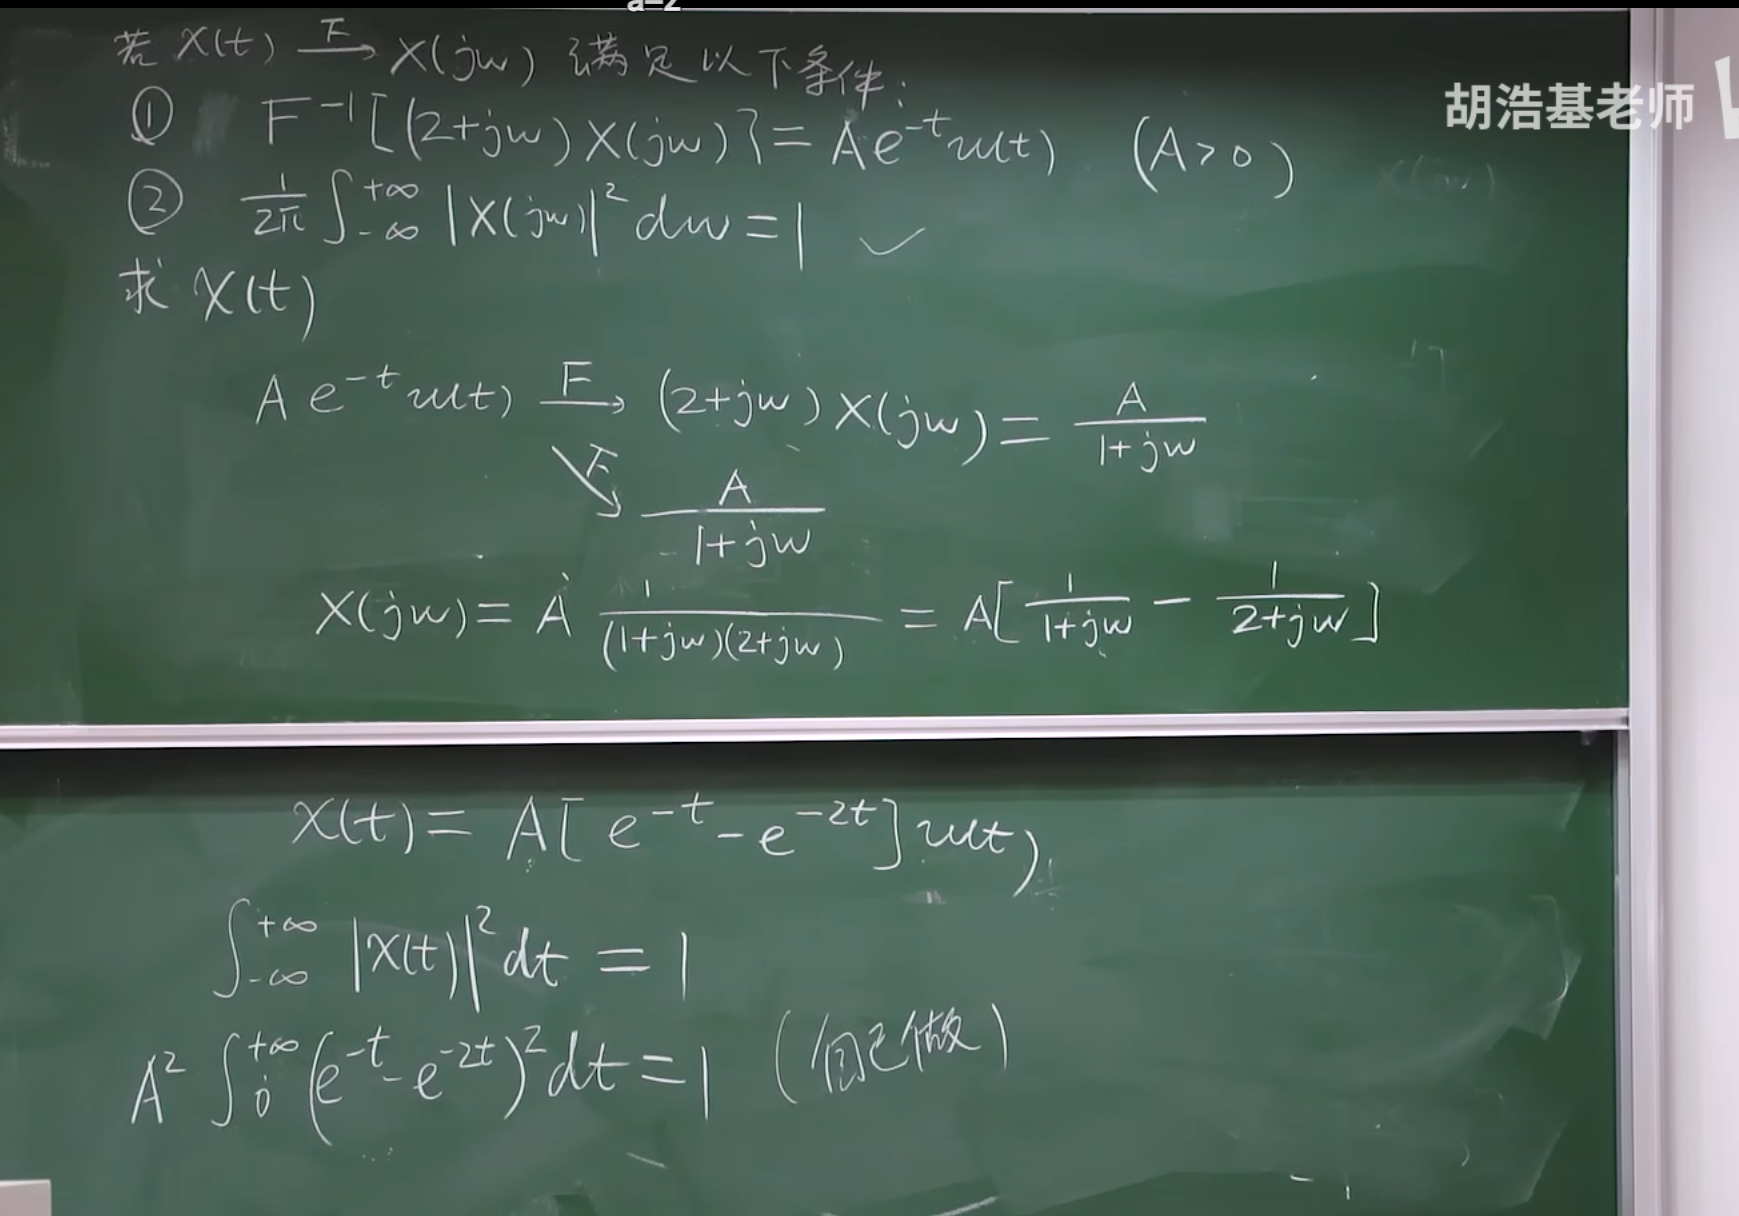 a=2
若 X(t) F→ X(jw) 满足以下条件:
胡浩基老师
① F⁻¹[(2+jw)X(jw)]=Ae^{-t}u(t) (A>0)
② 1/2π ∫_{-∞}^{+∞} |X(jw)|² dw=1 ✓
求 X(t)
A e^{-t}u(t) F→ (2+jw)X(jw)= A/(1+jw)
F↘ A/(1+jw)
X(jw)= A 1/((1+jw)(2+jw)) = A[1/(1+jw) - 1/(2+jw)]
X(t)= A[e^{-t}-e^{-2t}]u(t)
∫_{-∞}^{+∞} |X(t)|² dt = 1
A² ∫_0^{+∞} (e^{-t}-e^{-2t})² dt=1 (自己做)